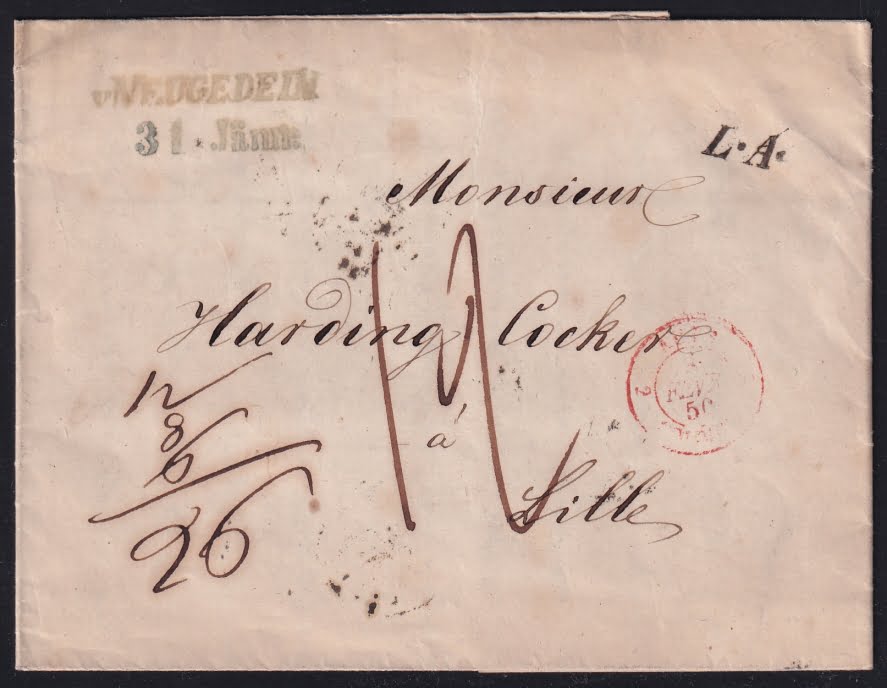 v. NEUGEDEIN
31. Jänn:
L. A.
Monsieur
Harding Cocker
12
à
Lille
12
8/6
26
2
FEVR.
50